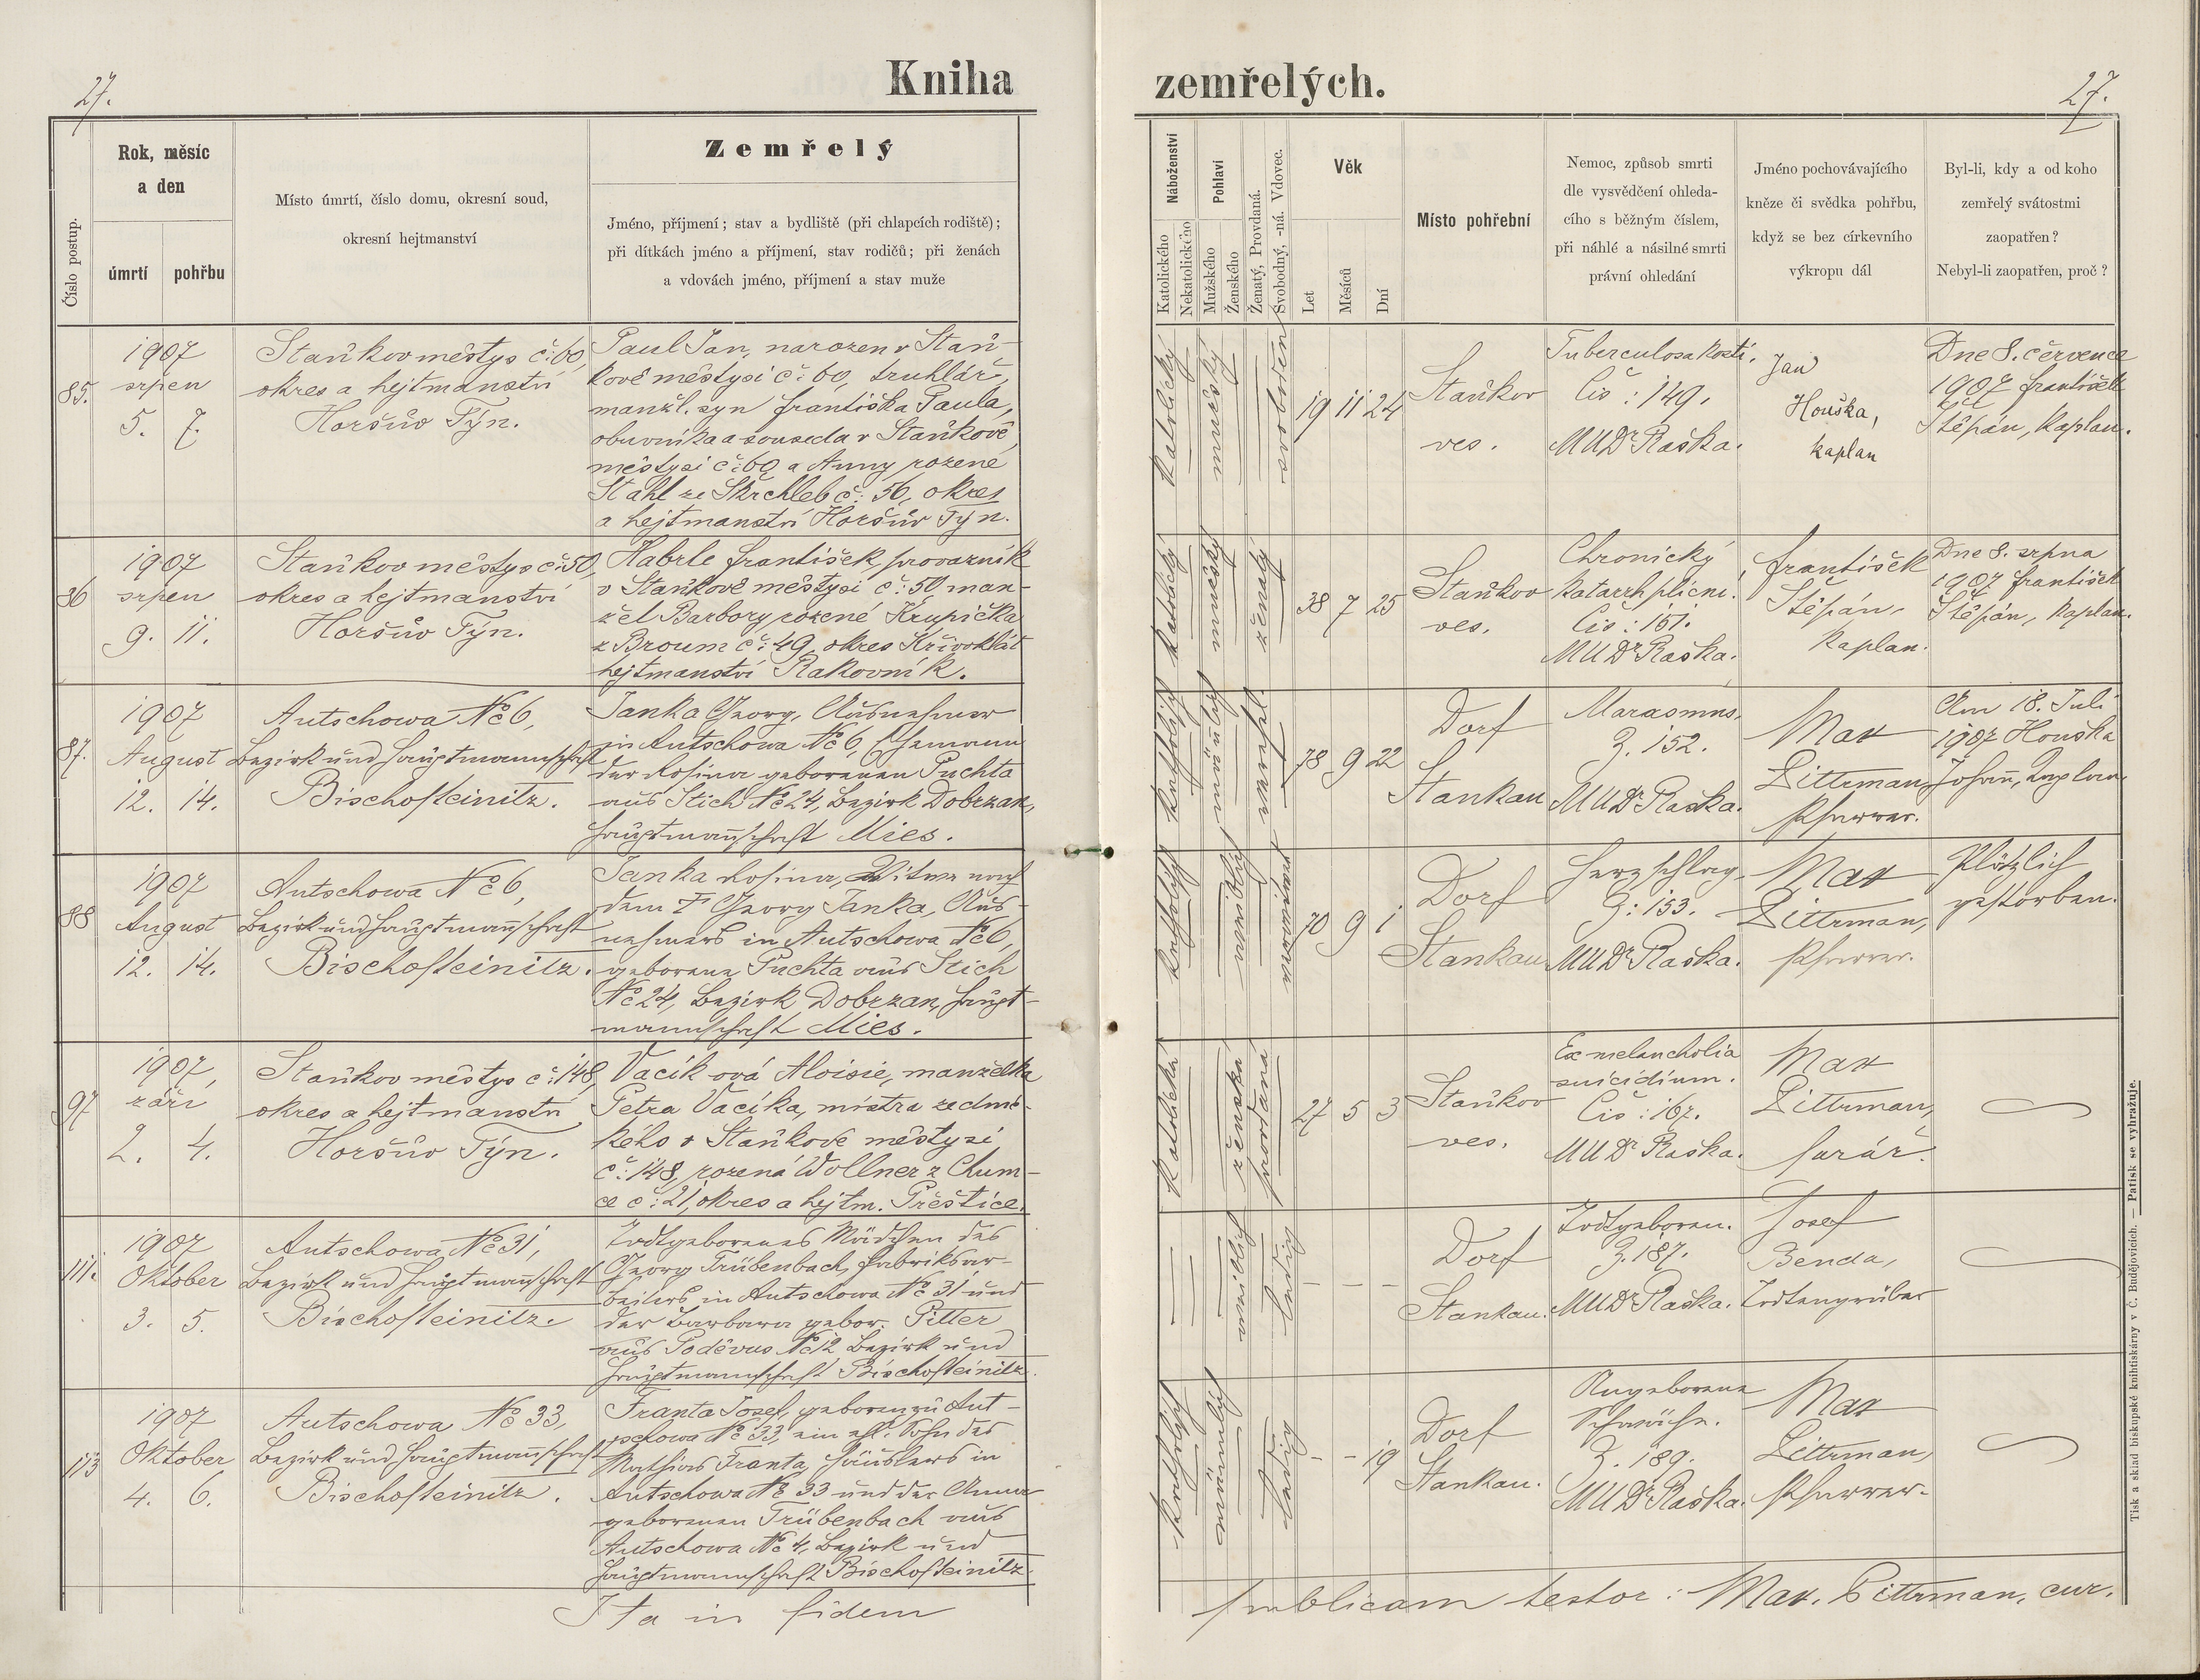 27.
Kniha
Číslo postup.
Rok, měsíc
a den
úmrtí
pohřbu
Místo úmrtí, číslo domu, okresní soud,
okresní hejtmanství
Zemřelý
Jméno, příjmení; stav a bydliště (při chlapcích rodiště);
při dítkách jméno a příjmení, stav rodičů; při ženách
a vdovách jméno, příjmení a stav muže
85.
1907
srpen
5. 7.
Staňkov městys č: 60,
okres a hejtmanství
Horšův Týn.
Paul Jan, narozen v Staň-
kově městysi č: 60, truhlář,
manžl. syn Františka Paula,
obuvníka a souseda v Staňkově
městysi č: 60 a Anny rozené
Stahl ze Skrchleb č: 56, okres
a hejtmanství Horšův Týn.
86
1907
srpen
9. 11.
Staňkov městys č: 50,
okres a hejtmanství
Horšův Týn.
Habrle František, provazník
v Staňkově městysi č: 50, man-
žel Barbory rozené Krupička
z Broum č: 49, okres Křivoklát
hejtmanství Rakovník.
87.
1907
August
12. 14.
Autschowa No 6,
Bezirk und Hauptmannschaft
Bischofteinitz.
Janka Georg, Ausnehmer
in Autschowa No 6, Ehemann
der Rosina geborenen Puchta
aus Stich No 24, Bezirk Dobrzan,
Hauptman̄schaft Mies.
88
1907
August
12. 14.
Autschowa No 6,
Bezirk und Hauptman̄schaft
Bischofteinitz.
Janka Rosina, Witwe nach
dem † Georg Janka, Aus-
nehmers in Autschowa No 6,
geborene Puchta aus Stich
No 24, Bezirk Dobrzan, Haupt-
mannschaft Mies.
97
1907,
září
2. 4.
Staňkov městys č: 148,
okres a hejtmanství
Horšův Týn.
Vacík-ová Aloisie, manželka
Petra Vacíka, mistra zedni-
kého v Staňkově městysi
č: 148, rozená Wollner z Chum-
ce č: 21, okres a hejtm. Přeštice.
111.
1907
Oktober
3. 5.
Autschowa No 31,
Bezirk und Hauptman̄schaft
Bischofteinitz.
Todtgeborenes Mädchen des
Georg Trübenbach, Fabriksar-
beiters in Autschowa No 31 und
der Barbara gebor. Pitter
aus Poděvus No 12 Bezirk und
Hauptmannschaft Bischofteinitz.
113
1907
Oktober
4. 6.
Autschowa No 33,
Bezirk und Hauptman̄schaft
Bischofteinitz.
Franta Josef, geboren zu Aut-
schowa No 33, ein ehl: Sohn des
Mathias Franta, Häuslers in
Autschowa No 33 und der Anna
geborenen Trübenbach aus
Autschowa No 4, Bezirk und
Hauptmannschaft Bischofteinitz.
Ita in fidem
zemřelých.
27.
Náboženství
Katolického
Nekatolického
Pohlaví
Mužského
Ženského
Ženatý, Provdaná.
Svobodný, -ná. Vdovec.
Věk
Let
Měsíců
Dní
Místo pohřební
Nemoc, způsob smrti
dle vysvědčení ohleda-
cího s běžným číslem,
při náhlé a násilné smrti
právní ohledání
Jméno pochovávajícího
kněze či svědka pohřbu,
když se bez církevního
výkropu dál
Byl-li, kdy a od koho
zemřelý svátostmi
zaopatřen?
Nebyl-li zaopatřen, proč?
katolický
mužský
svoboden
19 11 24
Staňkov
ves.
Tuberculosa kosti.
Čís: 149.
MUDr Raška.
Jan
Houška,
kaplan
Dne 8. července
1907 František
Štěpán, kaplan.
katolický
mužský
ženatý
38 7 25
Staňkov
ves.
Chronický
katarrh plicní.
Čís: 151.
MUDr Raška.
František
Štěpán,
kaplan.
Dne 8. srpna
1907 František
Štěpán, kaplan.
katholisch
männlich
verehel.
78 9 22
Dorf
Stankau
Marasmus.
Z. 152.
MUDr Raška.
Max
Dittrman,
Pfarrer.
Am 18. Juli
1907 Houška
Johan̄, Kaplan
katholisch
weiblich
verwitwet
70 9 1
Dorf
Stankau
Herzschlag.
Z: 153.
MUDr Raška.
Max
Dittrman,
Pfarrer.
Plötzlich
gestorben.
katolická
ženská
provdaná
27 5 3
Staňkov
ves.
Ex melancholia
suicidium.
Čís: 167.
MUDr Raška.
Max
Dittrman,
farář.
weiblich
ledig
- - -
Dorf
Stankau.
Todtgeboren.
Z. 187.
MUDr Raška.
Josef
Benda,
Todtengräber
katholisch
männlich
ledig
- - 19
Dorf
Stankau.
Angeborene
Schwäche.
Z. 189.
MUDr Raška.
Max
Dittrman,
Pfarrer.
publicam testor: Max. Dittrman, cur.
Tisk a sklad biskupské knihtiskárny v Č. Budějovicích. — Patisk se vyhražuje.